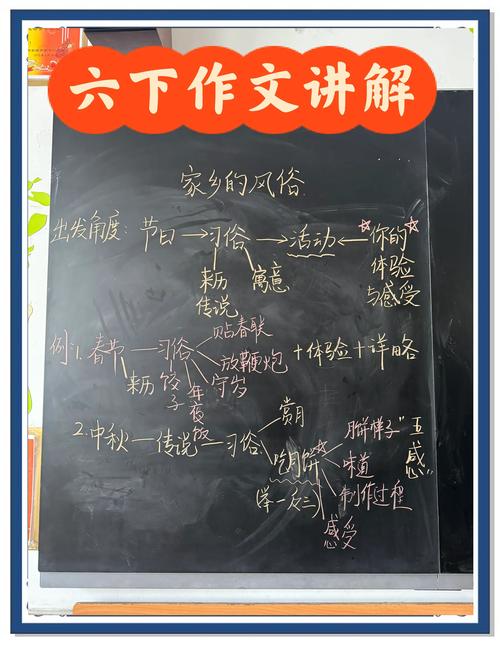 六下作文讲解
家乡的风俗
出发角度：节日→习俗→活动←你的
体验
与感受
来历
传说
寓意
例：1.春节—习俗
贴春联
放鞭炮
守岁
年夜饭
饺子
来历
+体验+详略
2.中秋—传说—习俗
赏月
吃月饼
(举一反三)
月饼样子
味道
制作过程
感受
"五感"